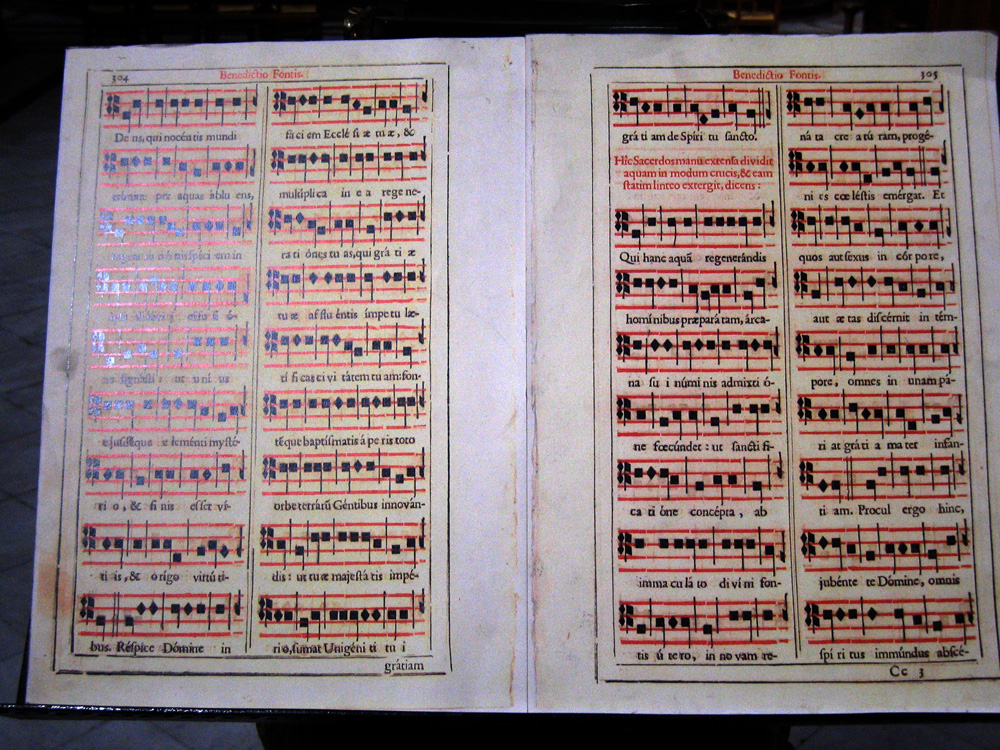 304
Benedictio Fontis.
De us, qui nocéntis mundi
crímina per aquas áblu ens,
spéci em in
ut u ni us
e júsdémque e leménti mysté-
ri o, & fi nis esset ví-
ti is, & orígo virtú ti-
bus. Réspice Dómine in
fá ci em Ecclé si æ tu æ, &
multíplica in e a rege ne-
ra ti ónes tu as, qui grá ti æ
tu æ afflu éntis ímpe tu læ-
tí fi cas ci vi tátem tu am: fon-
téque baptísmatis á pe ris toto
orbe terrárū Géntibus innován-
dis: ut tu æ majestá tis impé-
ri o, sumat Unigéni ti tu i
grátiam
Benedictio Fontis.
305
grá ti am de Spíri tu sancto.
Hîc Sacerdos manu extensa dividit
aquam in modum crucis, & eam
statim linteo extergit, dicens:
Qui hanc aquā regenerándis
homínibus præpará tam, árca-
na su i númi nis admixti ó-
ne fœcúndet: ut sancti fi-
ca ti óne concépta, ab
imma cu lá to diví ni fon-
tis ú te ro, in no vam re-
ná ta cre a tú ram, progé-
ni es cœ léstis emérgat. Et
quos aut sexus in cór po re,
aut æ tas discérnit in tém-
pore, omnes in unam pá-
ri at grá ti a ma ter infán-
ti am. Procul ergo hinc,
jubénte te Dómine, omnis
spí ri tus immúndus abscé-
Cc 3